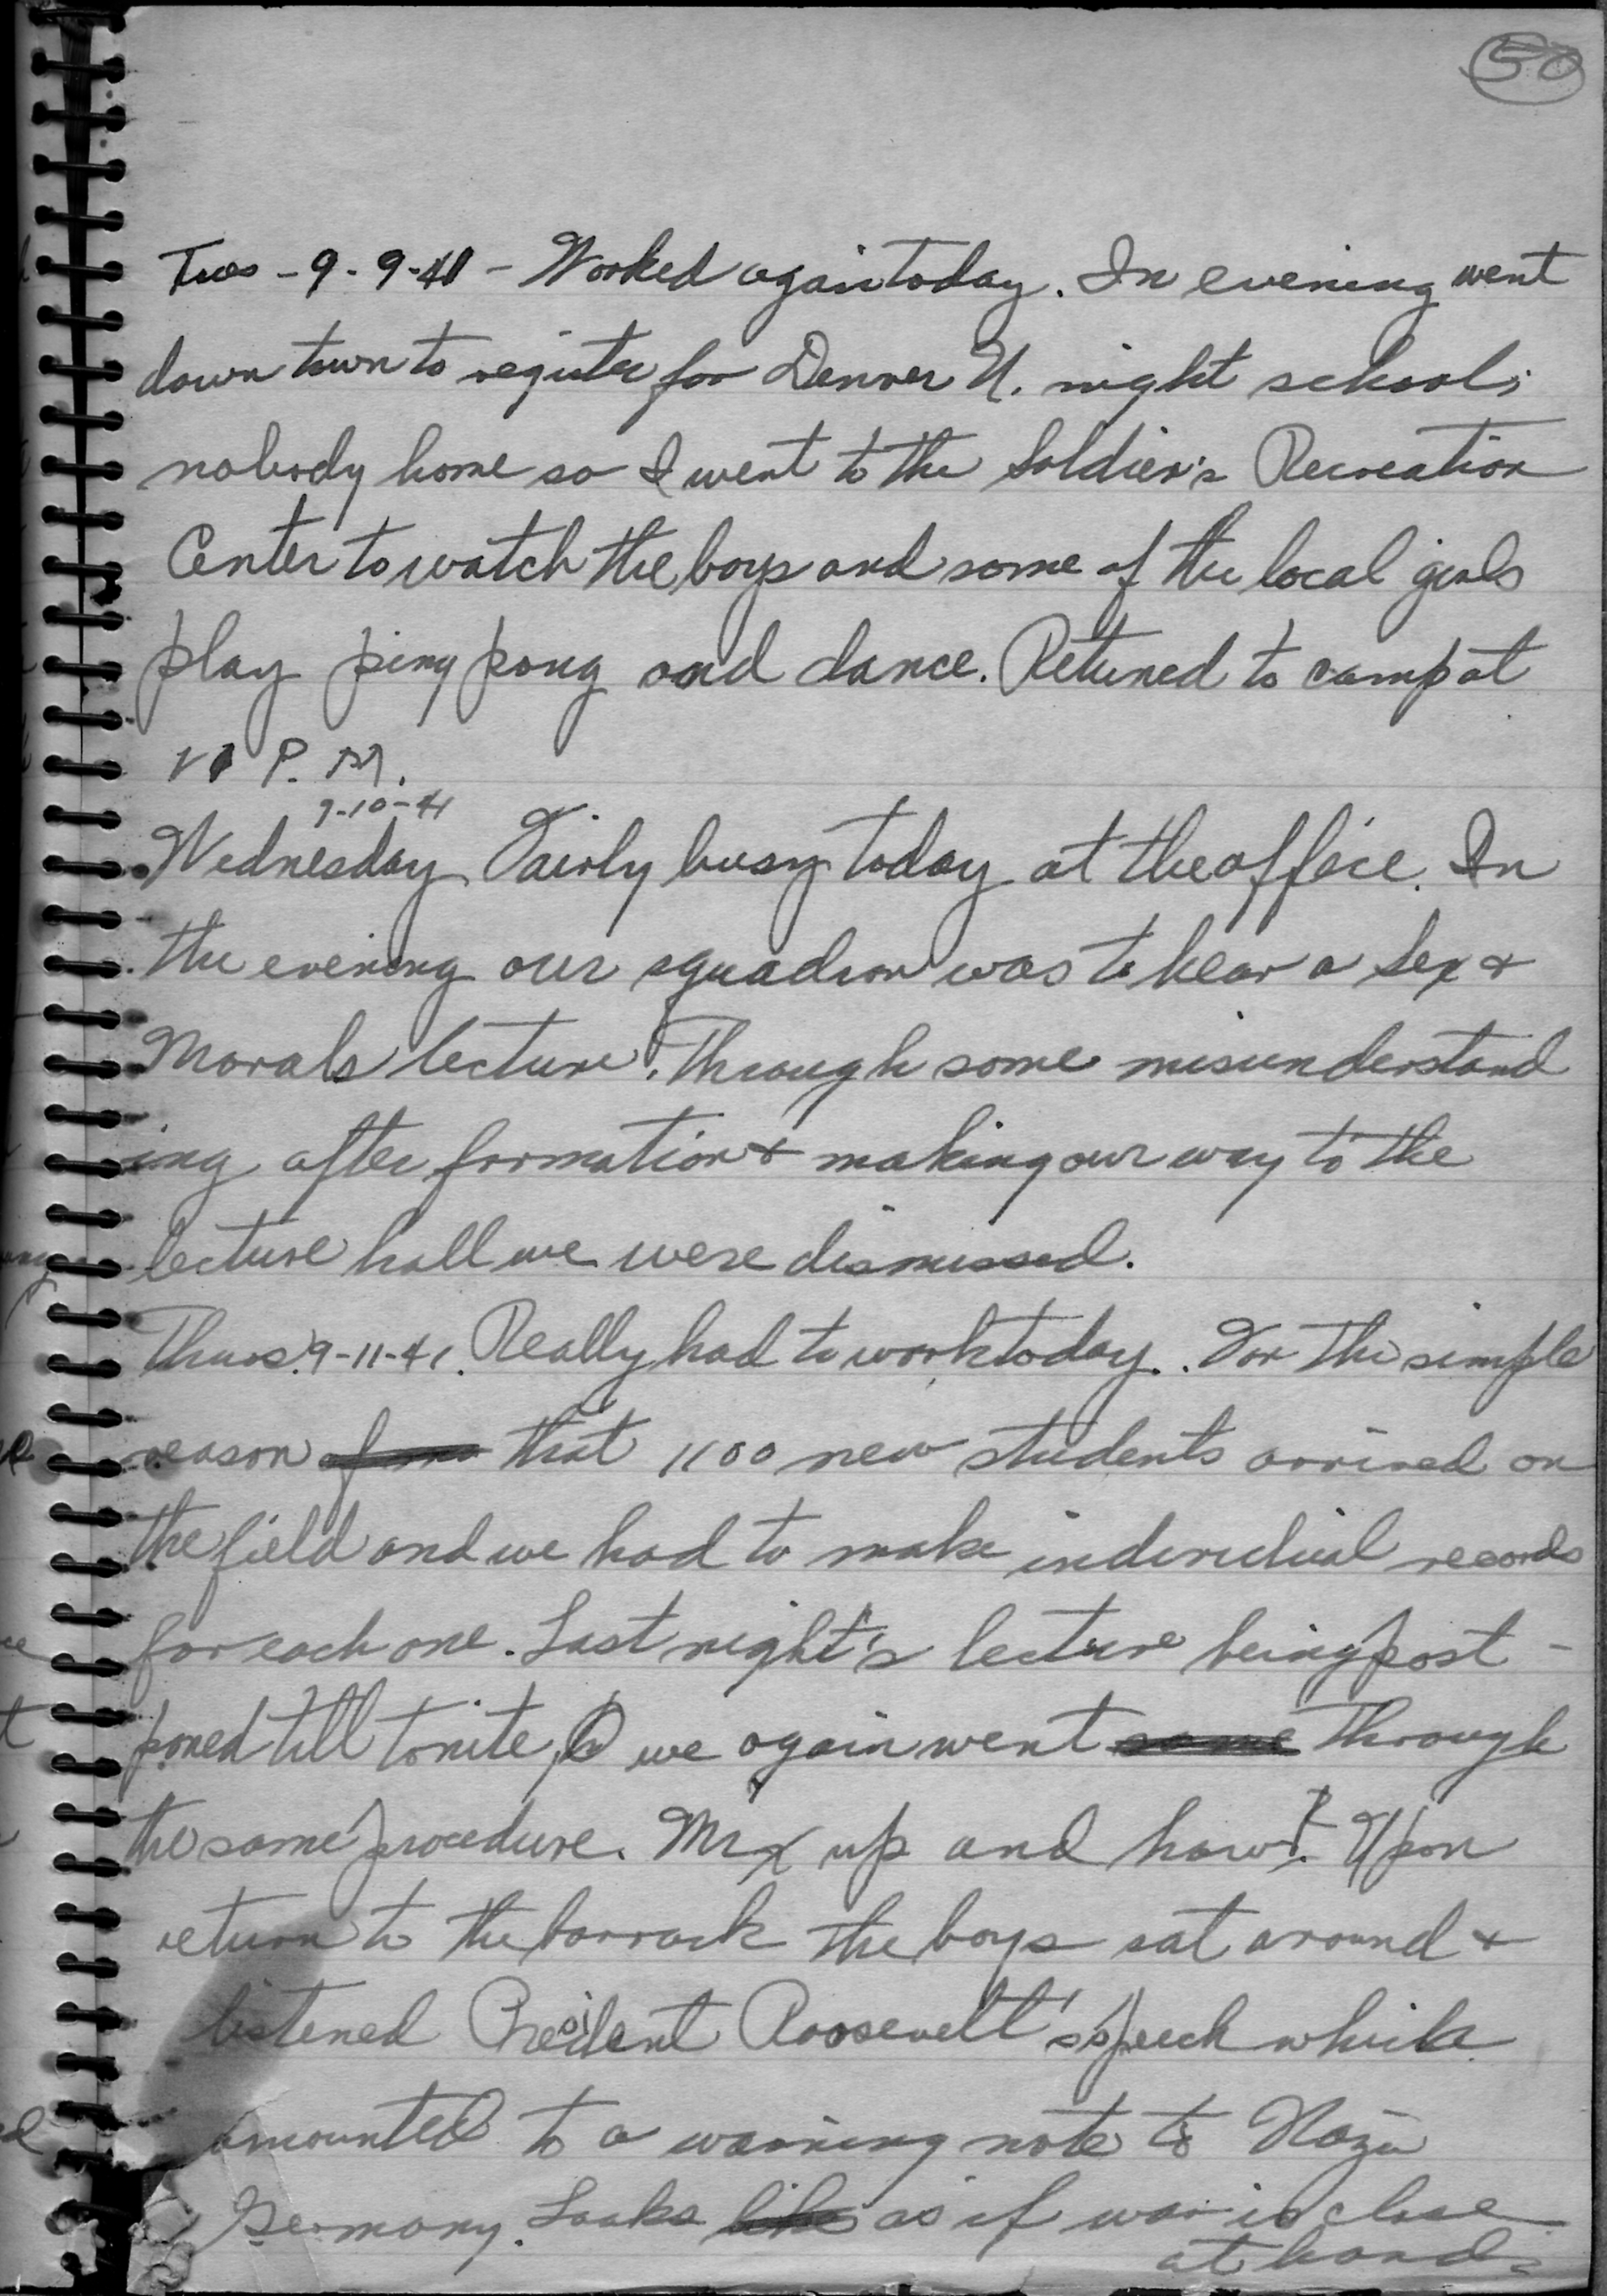 50
Tues - 9-9-41 - Worked again today. In evening went
down town to register for Denver U. night school;
nobody home so I went to the Soldier's Recreation
Center to watch the boys and some of the local girls
play ping pong and dance. Retuned to camp at
P. M.
9-10-41
Wednesday Fairly busy today at the office. In
the evening our squadron was to hear a Sex &
Morals lecture. Through some misunderstand
ing after formation & making our way to the
lecture hall we were dismissed.
Thurs. 9-11-41. Really had to work today. For the simple
reason that 1100 new students arrived on
the field and we had to make individual records
for each one. Last night's lecture being post-
poned till tonite, we again went some through
the same procedure. Mix up and how! Upon
return to the barrack the boys sat around &
listened President Roosevelt's speech which
amounted to a warning note to Nazi
Germany. Looks like as if war is close
at hand.